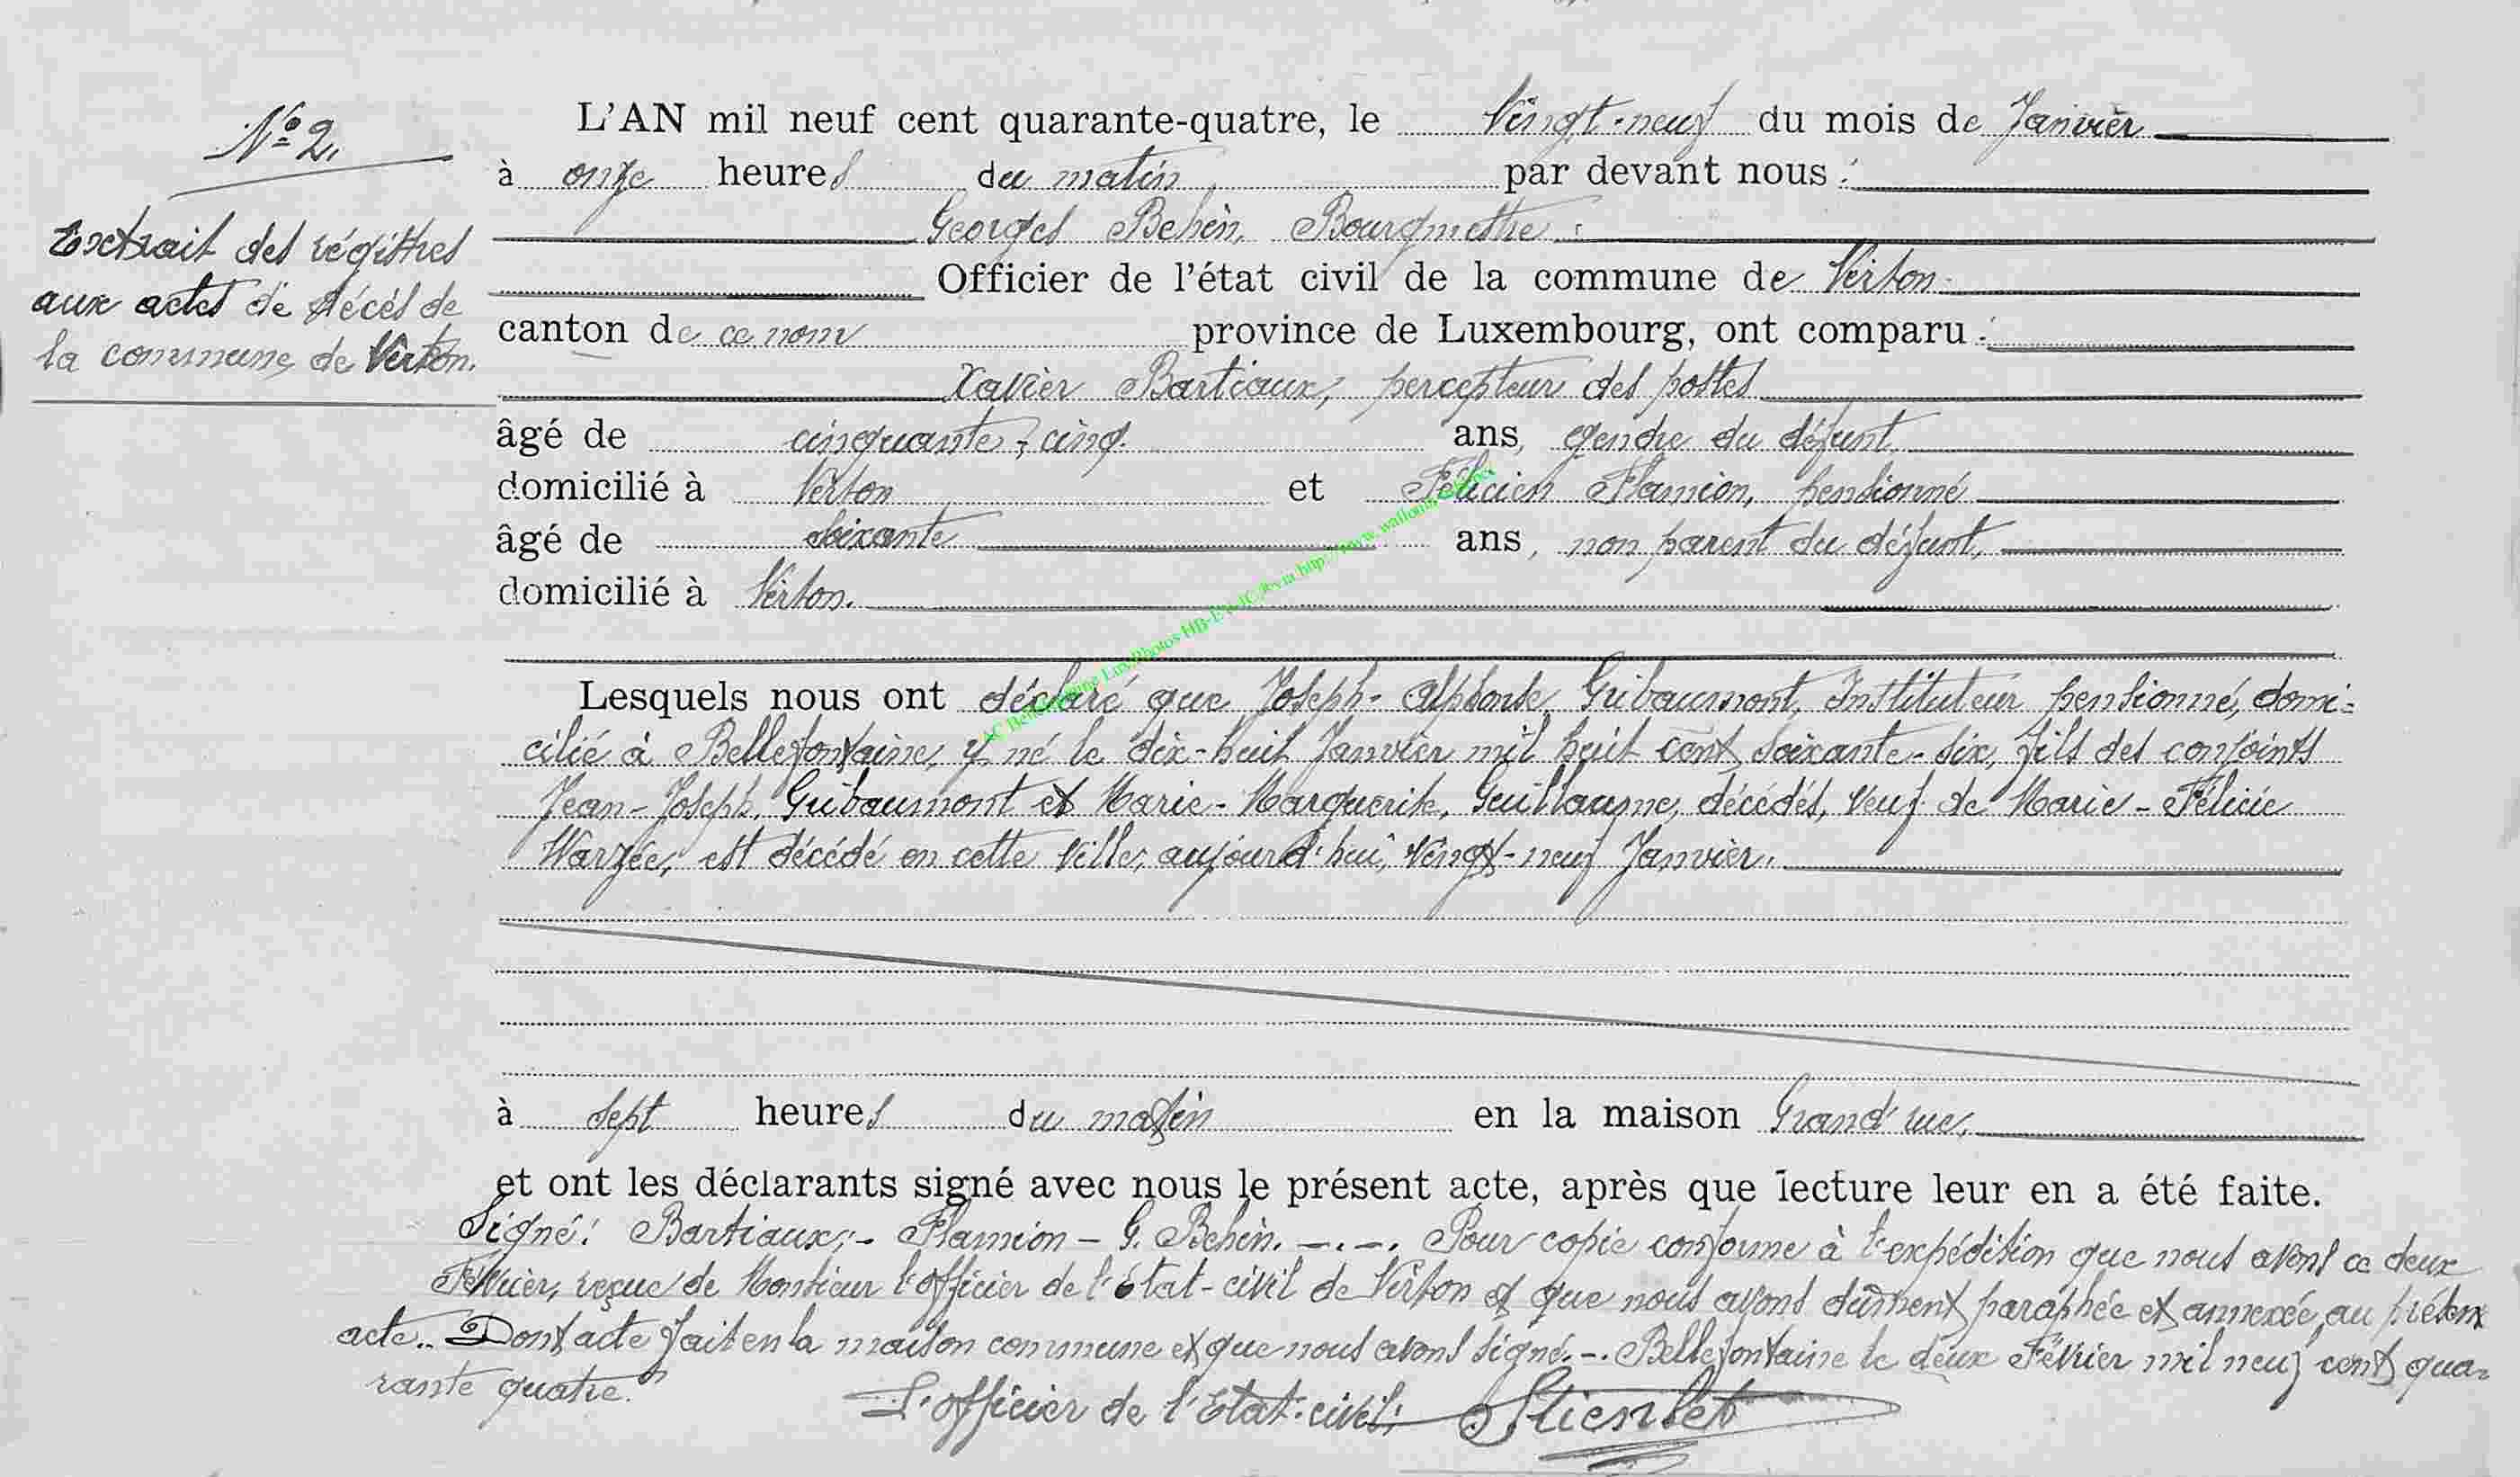 N° 2.
Extrait des régistres
aux actes de décès de
la commune de Virton.
L'AN mil neuf cent quarante-quatre, le Vingt-neuf du mois de Janvier
à onze heures du matin par devant nous :
Georges Behin, Bourgmestre :
Officier de l'état civil de la commune de Virton
canton de ce nom province de Luxembourg, ont comparu :
Xavier Bartiaux, percepteur des postes
âgé de cinquante-cinq ans, gendre du défunt,
domicilié à Virton et Félicien Flamion, pensionné
âgé de soixante ans, non parent du défunt,
domicilié à Virton.
Lesquels nous ont déclaré que Joseph-Alphonse Gribaumont, Instituteur pensionné, domi-
cilié à Bellefontaine, y né le dix-huit Janvier mil huit cent soixante-six, fils des conjoints
Jean-Joseph, Gribaumont et Marie-Marguerite, Guillaume, décédés, veuf de Marie-Félicie
Warzée, est décédé en cette ville, aujourd'hui, vingt-neuf Janvier.
à sept heures du matin en la maison Grand'rue,
et ont les déclarants signé avec nous le présent acte, après que lecture leur en a été faite.
Signé: Bartiaux,- Flamion - G. Behin. -.-. Pour copie conforme à l'expédition que nous avons ce deux
Février, reçue de Monsieur l'officier de l'état-civil de Virton et que nous avons dûment paraphée et annexée, au présent
acte.. Dont acte fait en la maison commune et que nous avons signé.-. Bellefontaine le deux Février mil neuf cent qua-
rante quatre.
L'officier de l'Etat-civil,